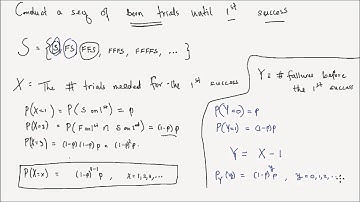 Conduct a seq of bern trials until 1st success
S = {S, FS, FFS, FFFS, FFFFS, ...}
X = The # trials needed for the 1st success
P(X=1) = P(S on 1st) = p
P(X=2) = P(F on 1st ∩ S on 2nd) = (1-p)p
P(X=3) = (1-p)(1-p)p = (1-p)²p
P(X=x) = (1-p)^{x-1} p , x=1,2,3,...
Y = # failures before
the 1st success
P(Y=0) = p
P(Y=1) = (1-p)p
Y = X - 1
P_Y(y) = (1-p)^y p , y=0,1,2,...